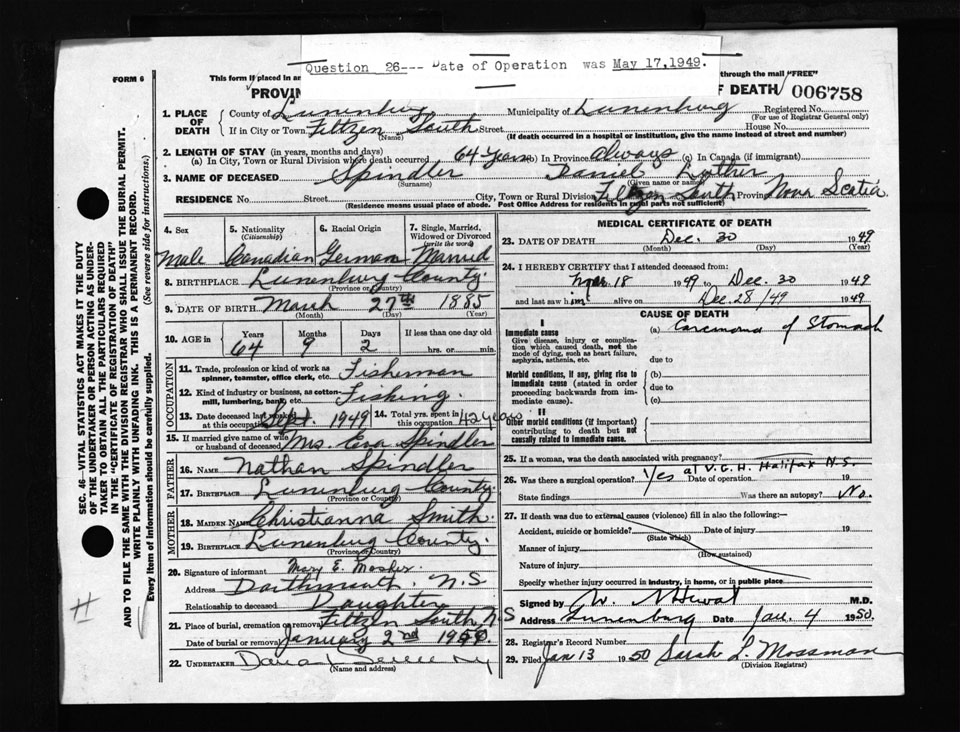 Question 26--- Date of Operation was May 17,1949.
FORM 6
This form if placed in an through the mail "FREE"
PROVIN OF DEATH 006758
1. PLACE OF DEATH County of Lunenburg Municipality of Lunenburg Registered No.
(For use of Registrar General only)
If in City or Town Feltzen South Street House No.
(Name) (If death occurred in a hospital or institution, give the name instead of street and number)
2. LENGTH OF STAY (in years, months and days)
(a) In City, Town or Rural Division where death occurred 64 Years (b) In Province Always (c) In Canada (if immigrant)
3. NAME OF DECEASED Spindler Daniel Luther
(Surname) (Given name or names)
RESIDENCE No. Street City, Town or Rural Division Feltzen South Province Nova Scotia
(Residence means usual place of abode. Post Office Address for residents in rural parts not sufficient)
4. Sex 5. Nationality (Citizenship) 6. Racial Origin 7. Single, Married, Widowed or Divorced (write the word)
Male Canadian German Married
8. BIRTHPLACE Lunenburg County.
(Province or Country)
9. DATE OF BIRTH March 27th 1885
(Month) (Day) (Year)
10. AGE in Years Months Days If less than one day old
64 9 2 hrs. or min.
OCCUPATION
11. Trade, profession or kind of work as spinner, teamster, office clerk, etc. Fisherman
12. Kind of industry or business, as cotton-mill, lumbering, bank, etc. Fishing.
13. Date deceased last worked at this occupation Sept. 1949 14. Total yrs. spent in this occupation 42 years
15. If married give name of wife or husband of deceased Mrs. Eva Spindler
FATHER
16. NAME Nathan Spindler
17. BIRTHPLACE Lunenburg County.
(Province or Country)
MOTHER
18. MAIDEN NAME Christianna Smith.
19. BIRTHPLACE Lunenburg County.
(Province or Country)
20. Signature of informant Mary E. Mosher.
Address Dartmouth, N.S
Relationship to deceased Daughter
21. Place of burial, cremation or removal Feltzen South, N.S
Date of burial or removal January 2nd 1950.
22. UNDERTAKER
(Name and address)
MEDICAL CERTIFICATE OF DEATH
23. DATE OF DEATH Dec. 30 1949
(Month) (Day) (Year)
24. I HEREBY CERTIFY that I attended deceased from:
18 1949 to Dec. 30 1949
and last saw him alive on Dec. 28/49 1949
CAUSE OF DEATH
I
Immediate cause (a) Carcinoma of Stomach
Give disease, injury or complication which caused death, not the mode of dying, such as heart failure, asphyxia, asthenia, etc.
due to
Morbid conditions, if any, giving rise to immediate cause (stated in order proceeding backwards from immediate cause). (b)
due to
(c)
II
Other morbid conditions (if important) contributing to death but not causally related to immediate cause.
25. If a woman, was the death associated with pregnancy?
at V.G.H. Halifax N.S.
26. Was there a surgical operation? Yes Date of operation 19
State findings Was there an autopsy? No.
27. If death was due to external causes (violence) fill in also the following:—
Accident, suicide or homicide? Date of injury 19
(State which)
Manner of injury
(How sustained)
Nature of injury
Specify whether injury occurred in industry, in home, or in public place
Signed by M.D.
Address Lunenburg Date Jan. 4 1950.
28. Registrar's Record Number
29. Filed Jan 13 1950 Sarah L. Mossman
(Division Registrar)
SEC. 46—VITAL STATISTICS ACT MAKES IT THE DUTY
OF THE UNDERTAKER OR PERSON ACTING AS UNDER-
TAKER TO OBTAIN ALL THE PARTICULARS REQUIRED
IN THE "CERTIFICATE OF REGISTRATION OF DEATH"
AND TO FILE THE SAME WITH THE DIVISION REGISTRAR WHO SHALL ISSUE THE BURIAL PERMIT.
WRITE PLAINLY WITH UNFADING INK. THIS IS A PERMANENT RECORD.
Every item of information should be carefully supplied. (See reverse side for instructions.)
H